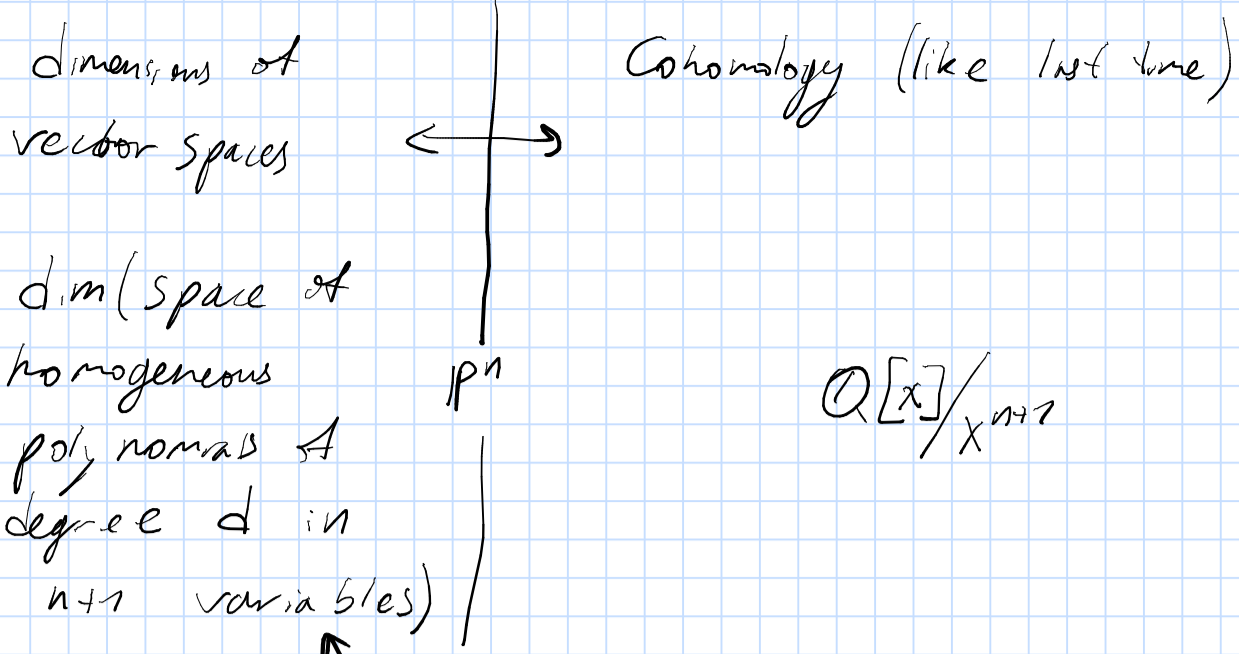 dimensions of
vector spaces
Cohomology (like last time)
dim(space of
homogeneous
polynomials of
degree d in
n+1 variables)
ℙⁿ
ℚ[x]/xⁿ⁺¹